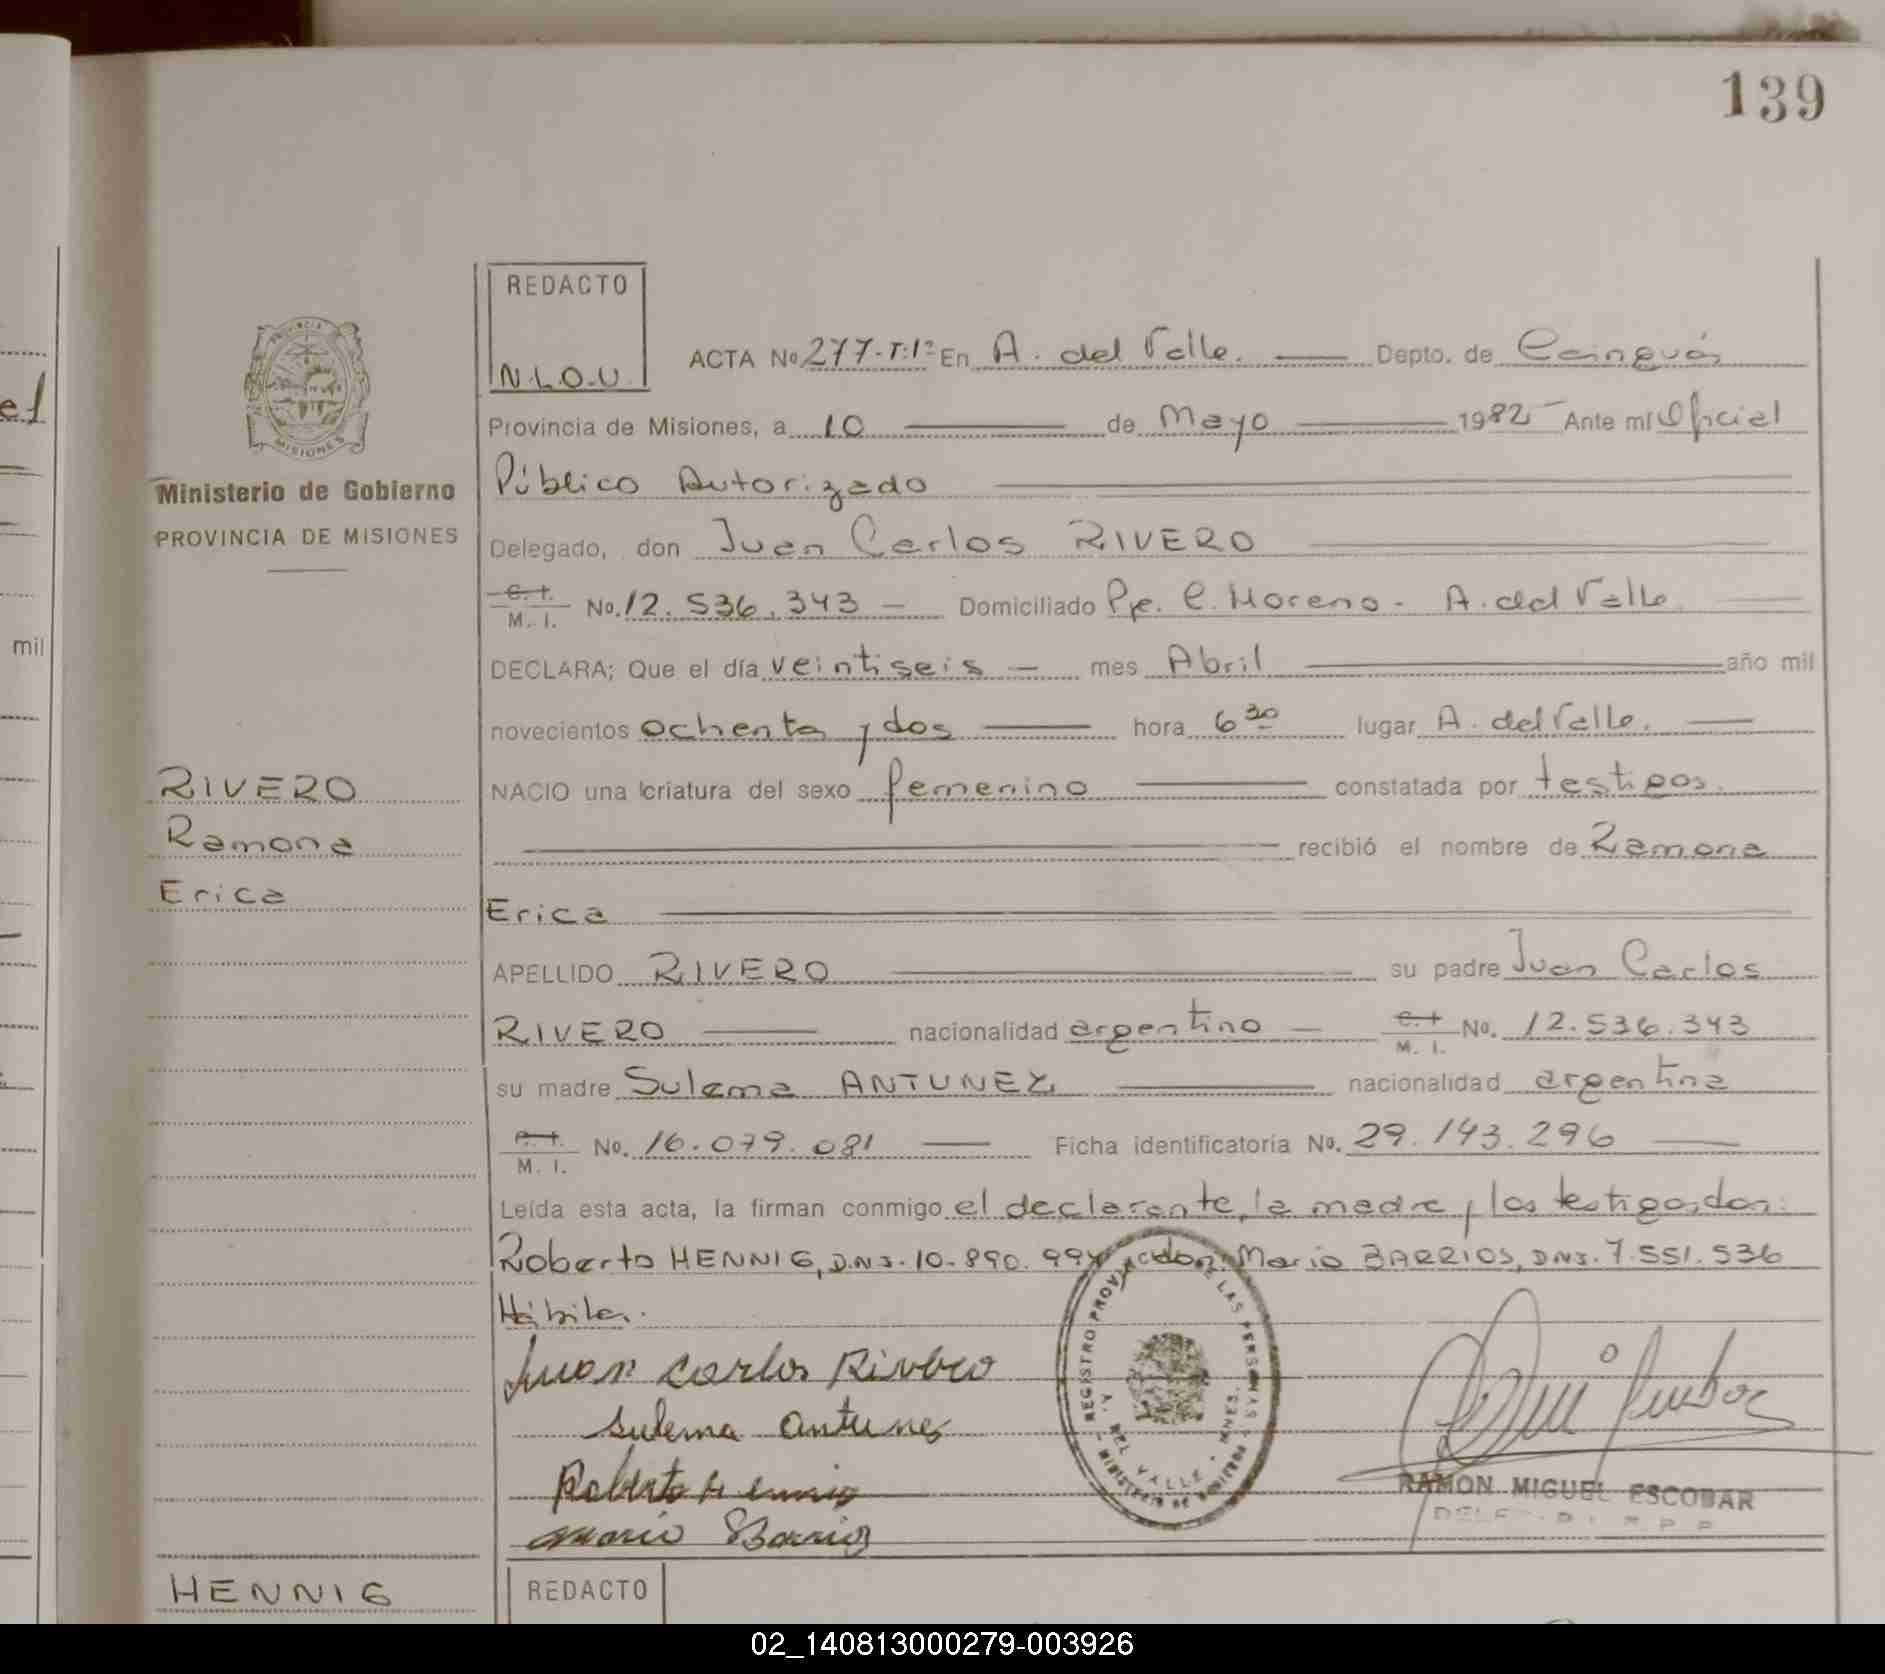 139
REDACTO
N.L.O.U.
ACTA No 277-T:1º En A. del Valle. Depto. de Cainguás
Provincia de Misiones, a 10 de Mayo 1982 Ante mí Oficial
Ministerio de Gobierno
PROVINCIA DE MISIONES
Público Autorizado
Delegado, don Juan Carlos RIVERO
C. I. M. I. No. 12.536.343 Domiciliado Pje. C. Moreno - A. del Valle
DECLARA; Que el día veintiseis mes Abril año mil
novecientos ochenta y dos hora 6 30 lugar A. del Valle.
RIVERO
Ramona
Erica
NACIO una criatura del sexo femenino constatada por testigos.
recibió el nombre de Ramona
Erica
APELLIDO RIVERO su padre Juan Carlos
RIVERO nacionalidad argentino C. I. M. I. No. 12.536.343
su madre Sulema ANTUNEZ nacionalidad argentina
C. I. M. I. No. 16.079.081 Ficha identificatoria No. 29.143.296
Leída esta acta, la firman conmigo el declarante, la madre y los testigos, don:
Roberto HENNIG, D.N.I. 10.890.99 y don Mario BARRIOS, D.N.I. 7.551.536
Hábiles.
Juan Carlos Rivero
Sulema Antunes
Roberto Hennig
Mario Barrios
REGISTRO DE LAS PERSONAS
A. DEL VALLE - MNES.
MINISTERIO DE GOBIERNO
RAMON MIGUEL ESCOBAR
HENNIG
REDACTO
mil
el
02_140813000279-003926